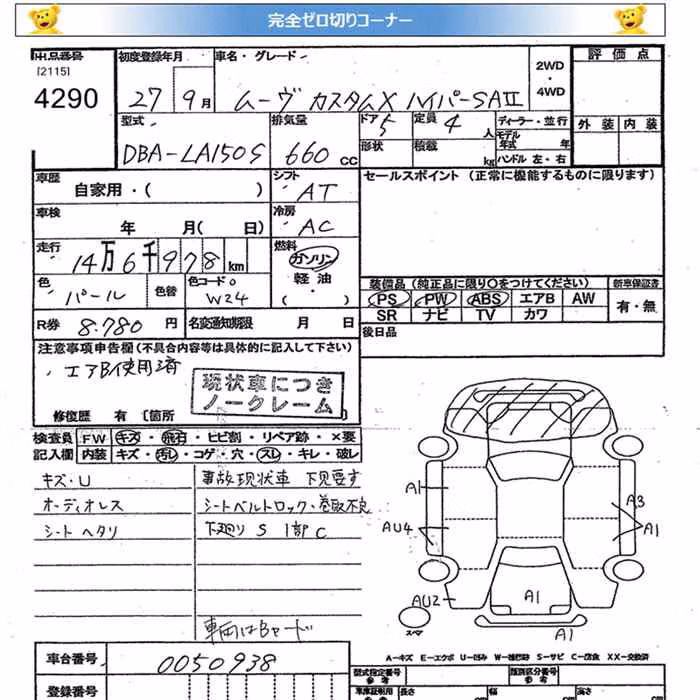 完全ゼロ切りコーナー
出品番号 初度登録年月 車名・グレード 2WD・4WD 評価点
[2115]
4290 27 9月 ムーヴ カスタムX ハイパーSAII
型式 排気量 ドア 定員 ディーラー・並行 外装 内装
DBA-LA150S 660 CC 5 4 人 モデル年式 年
形状 積載 kg ハンドル 左・右
車歴 シフト セールスポイント (正常に機能するものに限ります)
自家用・( ) AT
車検 冷房
年 月( 日) AC
走行 燃料
14万6千978 km ガソリン
色 色替 色コードNo 軽油 装備品 (純正品に限り○をつけてください) 新車保証書
パール W24 ・( ) PS PW ABS エアB AW 有・無
SR ナビ TV カワ
R券 8.780 円 名変通知期限 月 日 後日品
注意事項申告欄 (不具合内容等は具体的に記入して下さい)
・エアB使用済
現状車につき
ノークレーム
修復歴 有 [箇所 ]
検査員 FW キズ・飛石・ヒビ割・リペア跡・×要
記入欄 内装 キズ・汚レ・コゲ・穴・スレ・キレ・破レ
キズ・U 事故現状車 下見要す
オーディオレス シートベルトロック、巻取不良
シートヘタリ 下廻り S 1部C
A1 A3
AU4 A1
AU2 A1
スペア A1
車両はBヤード
A-キズ E-エクボ U-凹み W-補修跡 S-サビ C-腐食 XX-交換済
車台番号 0050938 型式指定番号 参考 類別区分番号 参考
登録番号 車庫証明用 参考 長さ cm 幅 cm 高さ cm